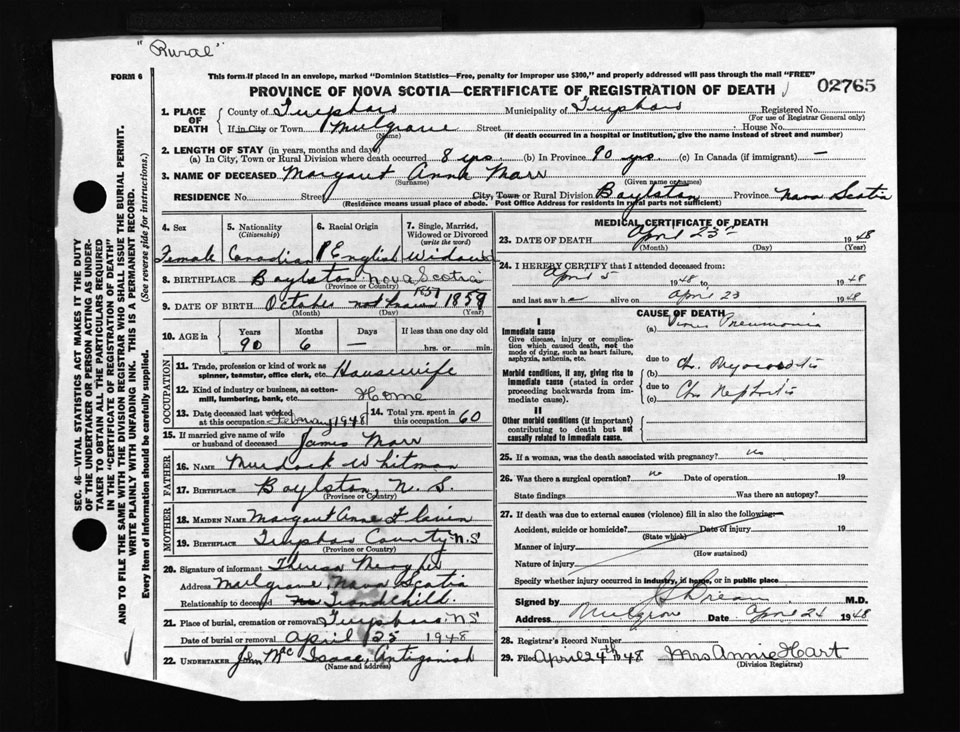 "Rural"
FORM 6
This form if placed in an envelope, marked "Dominion Statistics—Free, penalty for improper use $300," and properly addressed will pass through the mail "FREE"
PROVINCE OF NOVA SCOTIA—CERTIFICATE OF REGISTRATION OF DEATH 02765
1. PLACE OF DEATH
County of Municipality of Registered No.
(For use of Registrar General only)
If in City or Town Mulgrave Street House No.
(Name) (If death occurred in a hospital or institution, give the name instead of street and number)
2. LENGTH OF STAY (in years, months and days)
(a) In City, Town or Rural Division where death occurred 8 yrs. (b) In Province 90 yrs. (c) In Canada (if immigrant) —
3. NAME OF DECEASED Margaret Anne Marr
(Surname) (Given name or names)
RESIDENCE No. Street City, Town or Rural Division Boylston Province Nova Scotia
(Residence means usual place of abode. Post Office Address for residents in rural parts not sufficient)
4. Sex 5. Nationality (Citizenship) 6. Racial Origin 7. Single, Married, Widowed or Divorced (write the word)
Female Canadian English Widowed
8. BIRTHPLACE Boylston Nova Scotia
(Province or Country)
9. DATE OF BIRTH October not known 1857 1858
(Month) (Day) (Year)
10. AGE in Years Months Days If less than one day old
90 6 — hrs. or min.
OCCUPATION
11. Trade, profession or kind of work as spinner, teamster, office clerk, etc. Housewife
12. Kind of industry or business, as cotton-mill, lumbering, bank, etc. Home
13. Date deceased last worked at this occupation February 1948 14. Total yrs. spent in 60
15. If married give name of wife or husband of deceased James Marr
FATHER
16. NAME Murdock Whitman
17. BIRTHPLACE Boylston, N. S.
(Province or Country)
MOTHER
18. MAIDEN NAME Margaret Anne
19. BIRTHPLACE County N.S
(Province or Country)
20. Signature of informant Theresa
Address Mulgrave Nova Scotia
Relationship to deceased Grandchild.
21. Place of burial, cremation or removal N.S
Date of burial or removal April 25 1948
22. UNDERTAKER John McIsaac, Antigonish
(Name and address)
MEDICAL CERTIFICATE OF DEATH
23. DATE OF DEATH April 23 1948
(Month) (Day) (Year)
24. I HEREBY CERTIFY that I attended deceased from:
April 5 1948 to 1948
and last saw h alive on April 23 1948
CAUSE OF DEATH
I
Immediate cause (a) Pneumonia
Give disease, injury or complication which caused death, not the mode of dying, such as heart failure, asphyxia, asthenia, etc.
due to
Morbid conditions, if any, giving rise to immediate cause (stated in order proceeding backwards from immediate). (b) Ch. Myocarditis
due to
(c) Ch. Nephritis
II
Other morbid conditions (if important) contributing to death but not causally related to immediate cause.
25. If a woman, was the death associated with pregnancy? no
26. Was there a surgical operation? no Date of operation 19
State findings Was there an autopsy?
27. If death was due to external causes (violence) fill in also the following:—
Accident, suicide or homicide? Date of injury 19
(State which)
Manner of injury
(How sustained)
Nature of injury
Specify whether injury occurred in industry, in home, or in public place
Signed by M.D.
Address Mulgrave Date April 24 1948
28. Registrar's Record Number
29. Filed April 24th 1948 Mrs Annie Hart
(Division Registrar)
SEC. 46—VITAL STATISTICS ACT MAKES IT THE DUTY
OF THE UNDERTAKER OR PERSON ACTING AS UNDER-
TAKER TO OBTAIN ALL THE PARTICULARS REQUIRED
IN THE "CERTIFICATE OF REGISTRATION OF DEATH"
AND TO FILE THE SAME WITH THE DIVISION REGISTRAR WHO SHALL ISSUE THE BURIAL PERMIT.
WRITE PLAINLY WITH UNFADING INK. THIS IS A PERMANENT RECORD.
Every item of information should be carefully supplied. (See reverse side for instructions.)